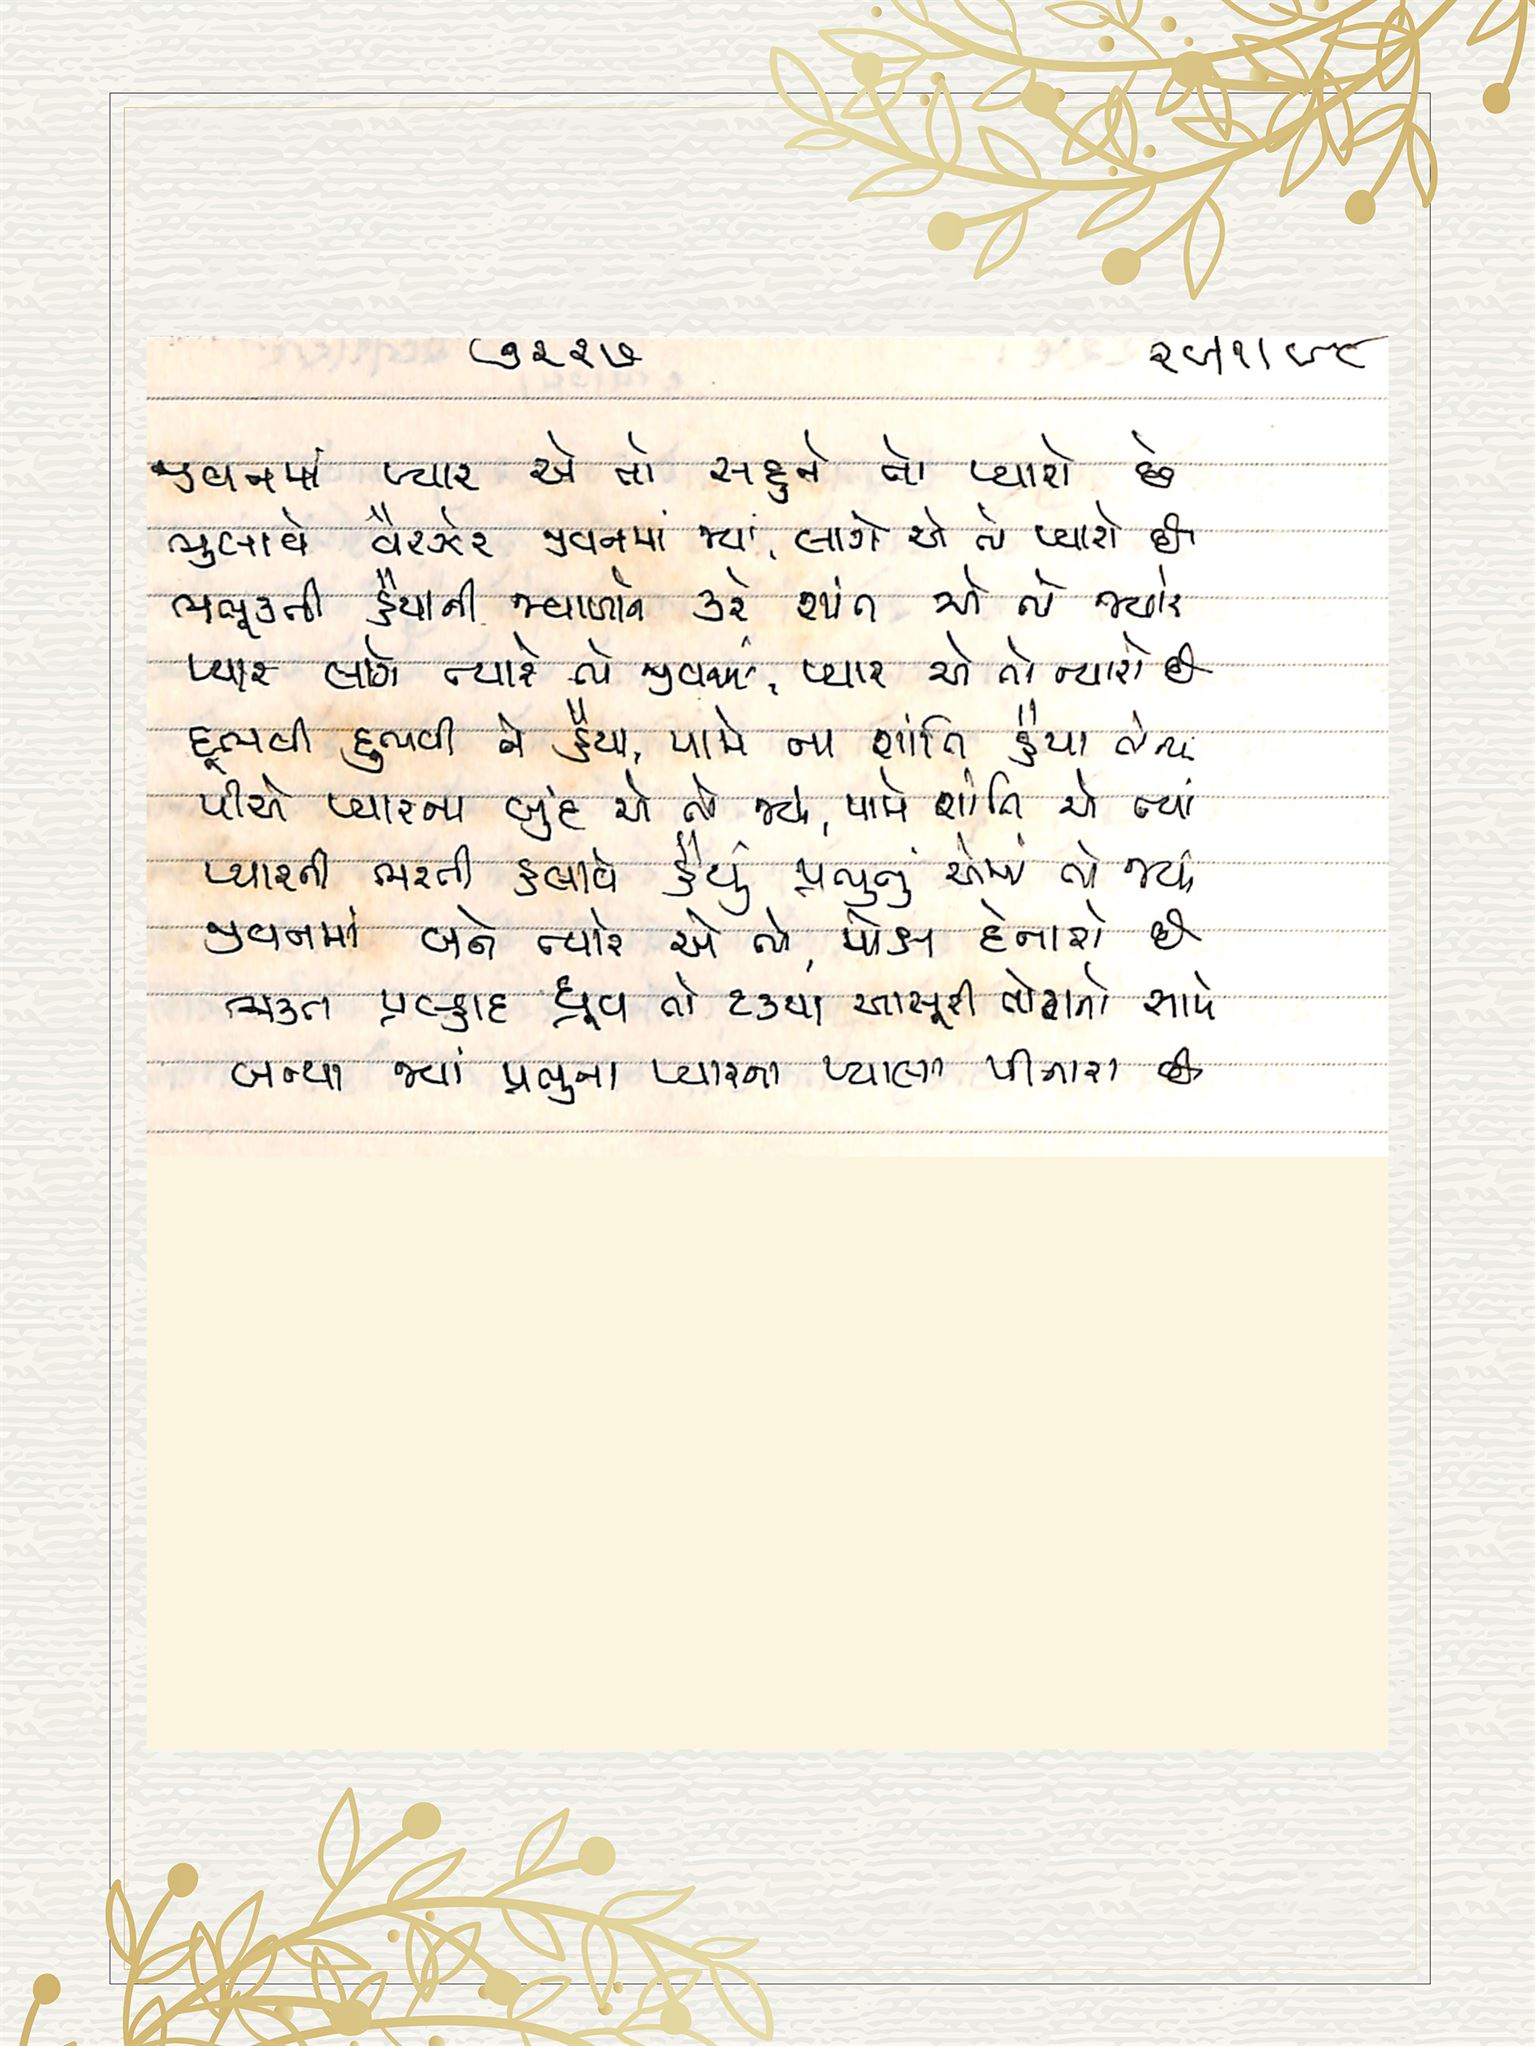 ૭૨૨૭
જીવનમાં પ્યાર એ તો સહુને તો પ્યારો છે
ભુલાવે વૈરઝેર જીવનમાં જ્યાં, લાગે એ તો પ્યારો છે
ભભૂકતી હૈયાની જ્વાળાને કરે શાંત એ તો જ્યારે
પ્યાર લાગે ત્યારે તો જીવનમાં, પ્યાર એ તો ન્યારો છે
દૂભવી દુભવી ને હૈયા, પામે ના શાંતિ હૈયા
પીએ પ્યારના બુંદ એ તો જ્યાં, પામે શાંતિ એ ત્યાં
પ્યારની ભરતી હલાવે હૈયું પ્રભુનું એમાં તો જ્યાં
જીવનમાં બને ત્યારે એ તો, મોક્ષ દેનારો છે
ભક્ત પ્રહ્લાદ ધ્રૂવ તો ટકયા આસૂરી સામે
બન્યા જ્યાં પ્રભુના પ્યારના પ્યાલા પીનારા છે